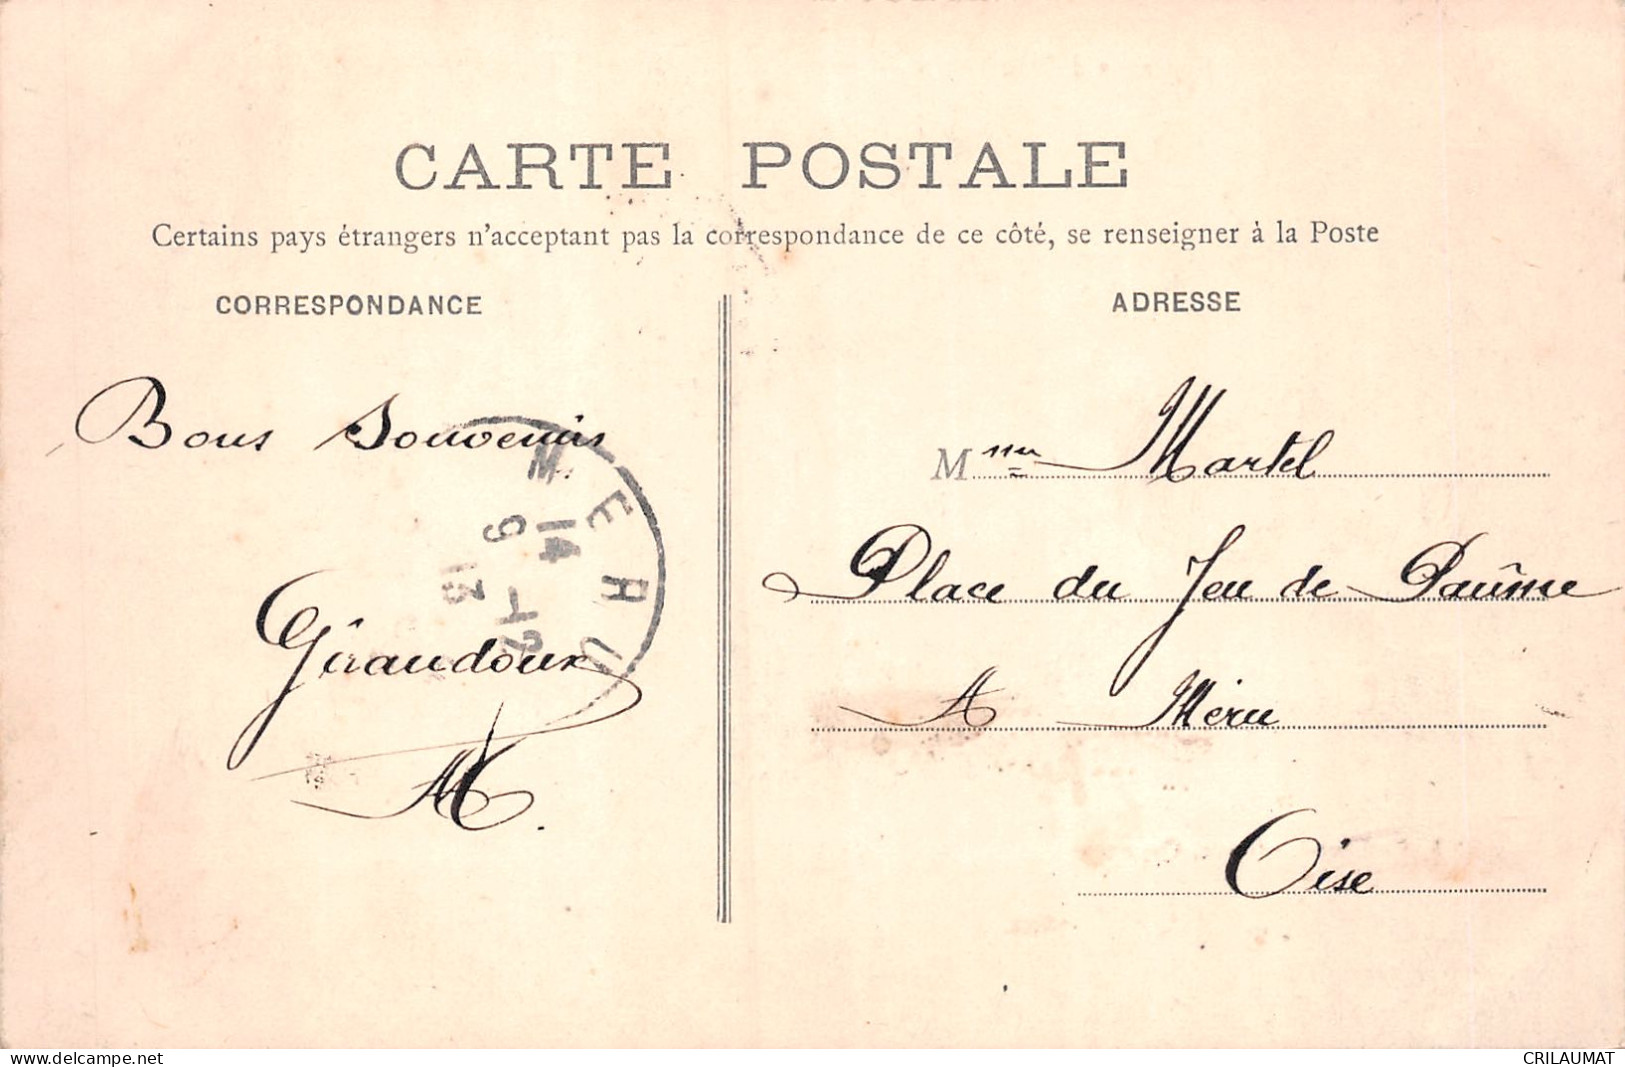 CARTE POSTALE
Certains pays étrangers n'acceptant pas la correspondance de ce côté, se renseigner à la Poste
CORRESPONDANCE
Bons Souvenirs
MERU
14
9 -12
13
Giraudoux
ADRESSE
Mme Martel
Place du Jeu de Paûme
A Méru
Oise
delcampe.net
CRILAUMAT